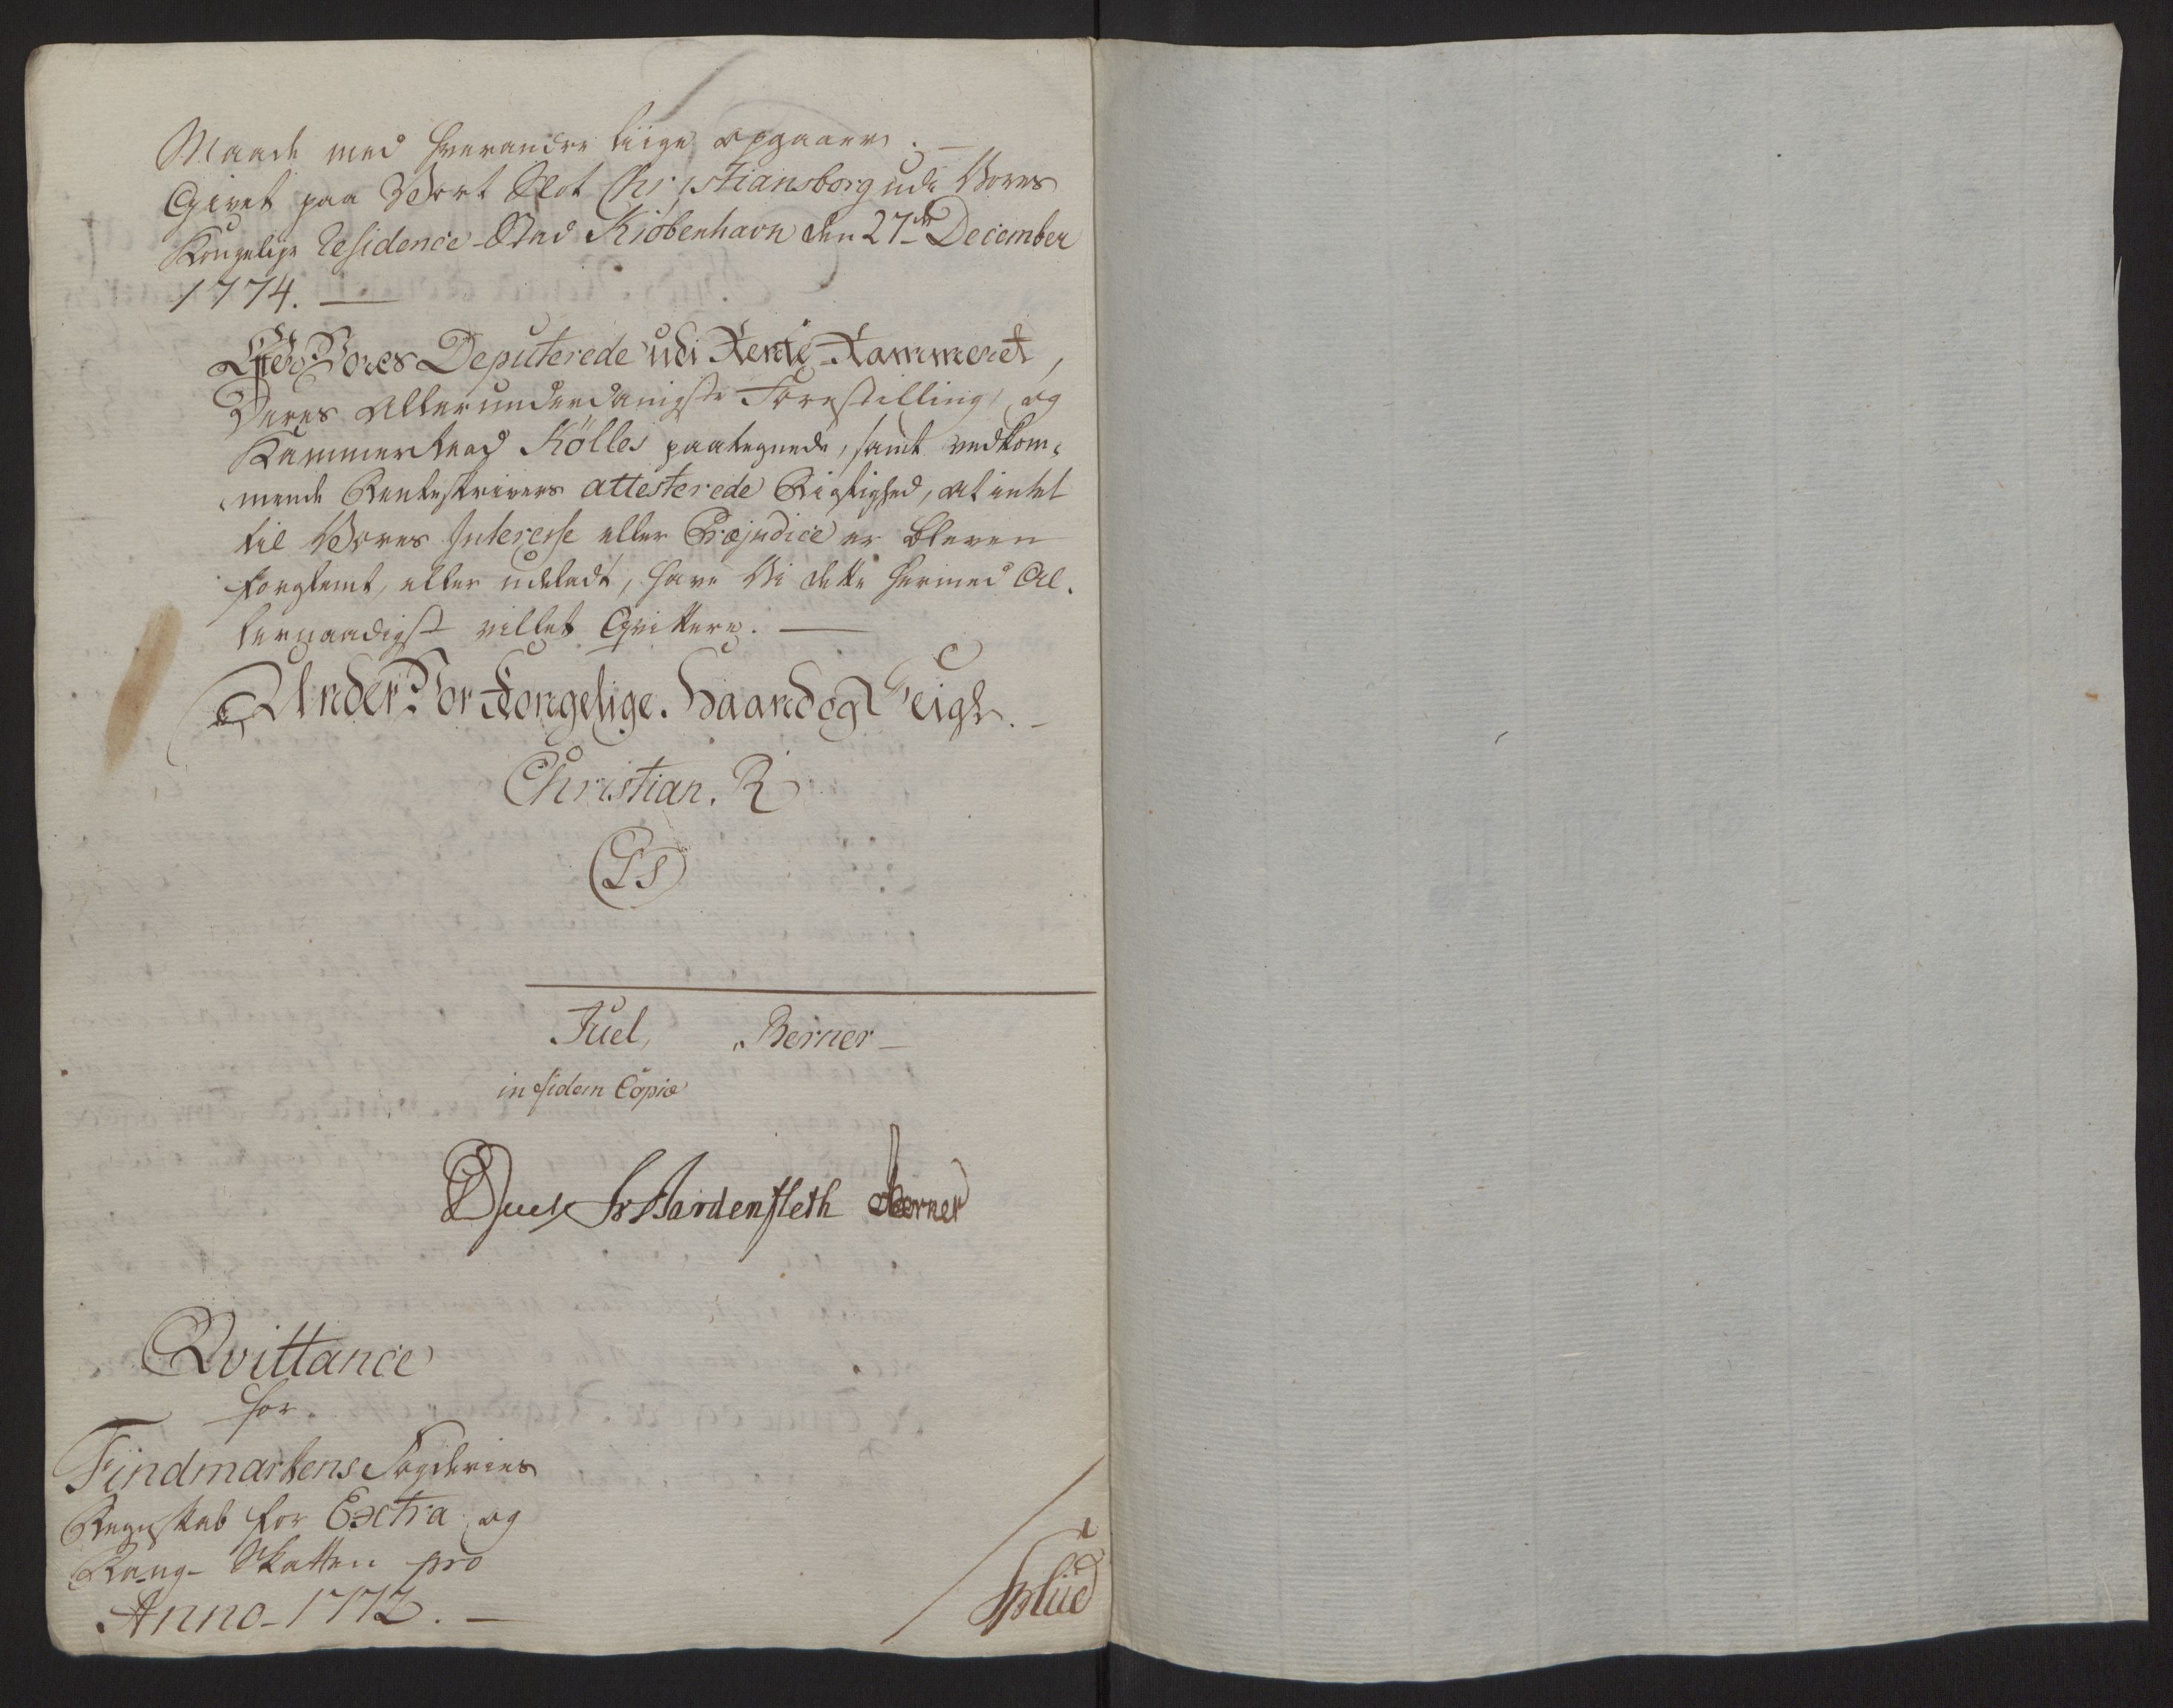 Maade med hverandre liige opgaaer. —
Givet paa Vort Slot Christiansborg udi Vores
Kongelige Residence-Stad Kiøbenhavn den 27de December
1774. —
Efter Vores Deputerede udi Rente-Kammeret,
Deres allerunderdanigste Forestilling, og
Kammerraad Kölles paategnede, samt vedkom-
mende Renteskrivers attesterede Rigtighed, at intet
til Vores Interesse eller Præjudice er bleven
forglemt, eller udeladt, have Vi dette hermed Al-
lernaadigst villet Qvittere. —
Under Vor Kongelige Haand og Seigl. —
Christian. R
(LS)
Juel, Berner —
in fidem Copiæ
Juel Fr Bardenfleth Berner
Qvittance
for
Findmarkens Fogderies
Regnskab for Extra og
Rang-Skatten pro
Anno 1772. —